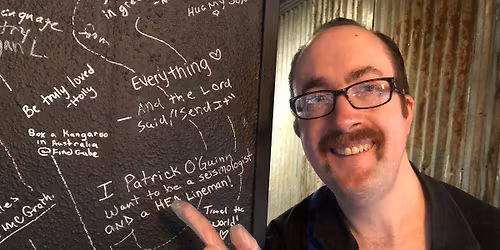 in great
Hug My
from
Everything ♡
— And the Lord
Said, "Send It"
Be truly loved
-Holly
Box a Kangaroo
in Australia
@FindGabe
I Patrick O'Guinn
want to be a seismologist
AND a HEA Lineman!
Travel the
World!
McGrath